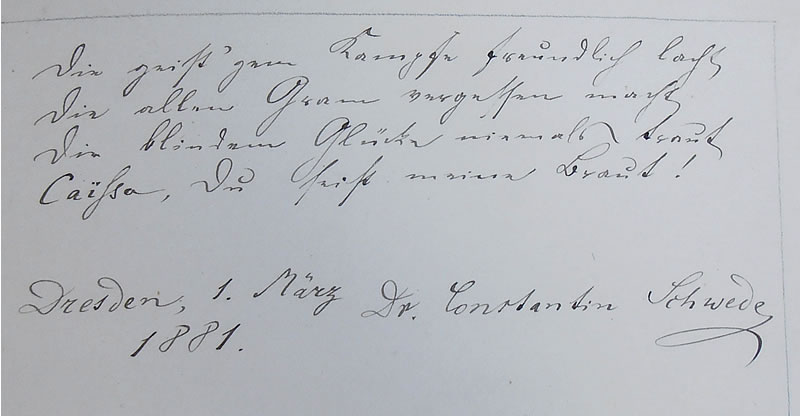 Die geist'gem Kampfe freundlich lacht
Die allen Gram vergessen macht
Die blindem Glücke niemals traut
Caïssa, Du seist meine Braut!
Dresden, 1. März Dr. Constantin Schwede
1881.